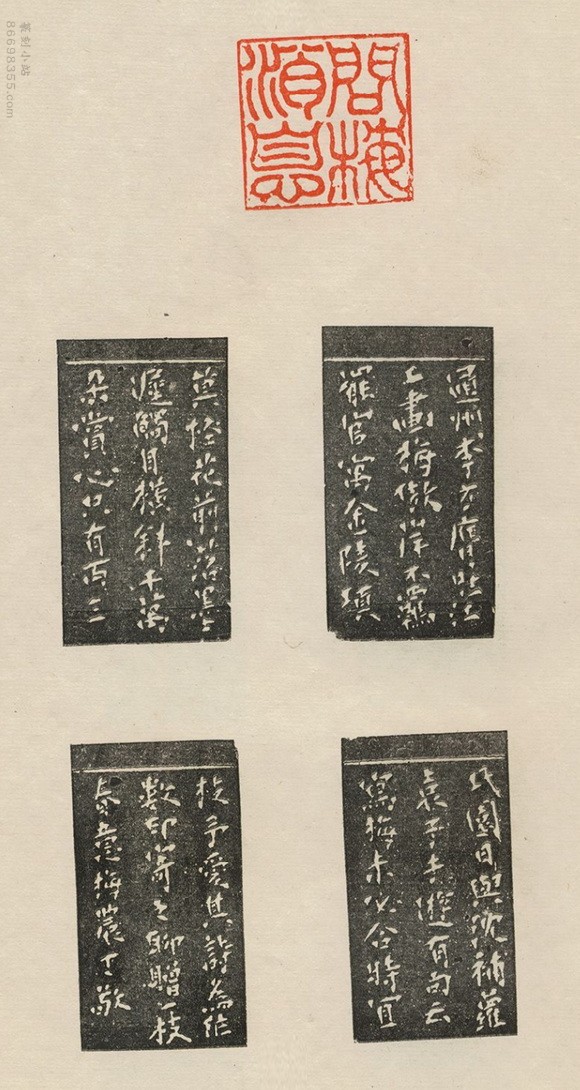 問梅
消息
通州李方膺晴江
工畫梅傲岸不羈
罷官寓金陵項
氏園日與沈補蘿
袁子才遊有句云
寫梅未必合時宜
莫怪花前落墨
遲觸目橫斜千萬
朵賞心只有兩三
枝予愛其詩為作
數印寄之聊贈一枝
春意梅農丁敬
篆刻小站
86698355.com